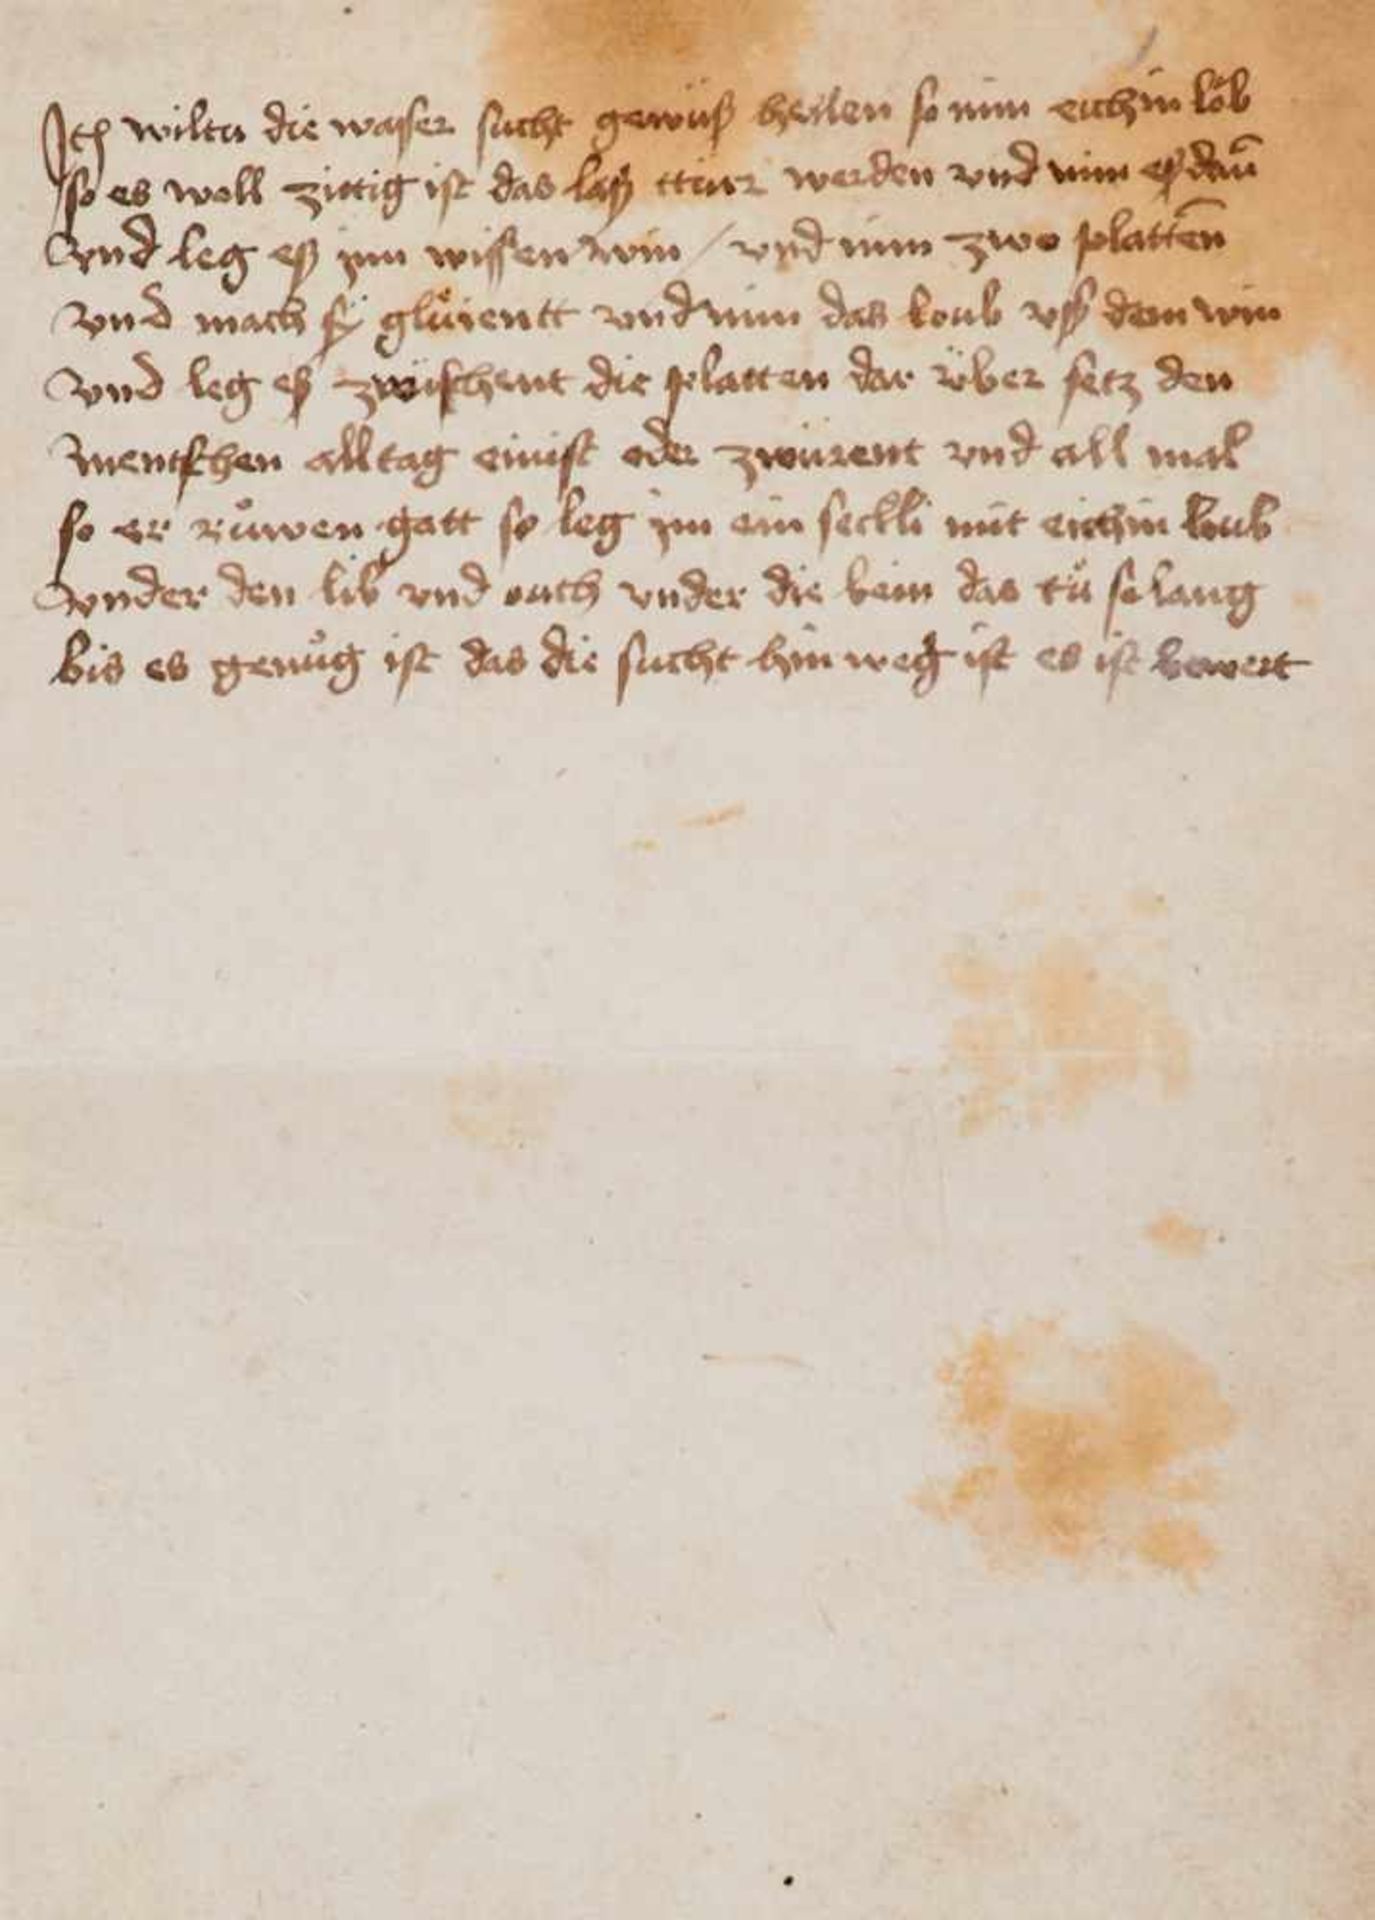 Itℯ wiltu die waser sucht gewüß heilen so nim eichin löb
so es woll zittig ist das laß ttürr werden vnd nim eß dan̄
vnd leg eß jnn wissen win / vnd nim zwo plattēn
vnd mach sÿ glüͦientt vnd nim das loub vß dem win
vnd leg eß zwüschent die platten dar über setz den
mentschen alltag einist oder zwürent vnd all mal
so er ruͦwen gatt so leg jm ein seckli mit eichin loub
vnder den lib vnd ouch vnder die bein das tuͦ so lang
bis es genuͦg ist das die sucht hin weg ist es ist bewert